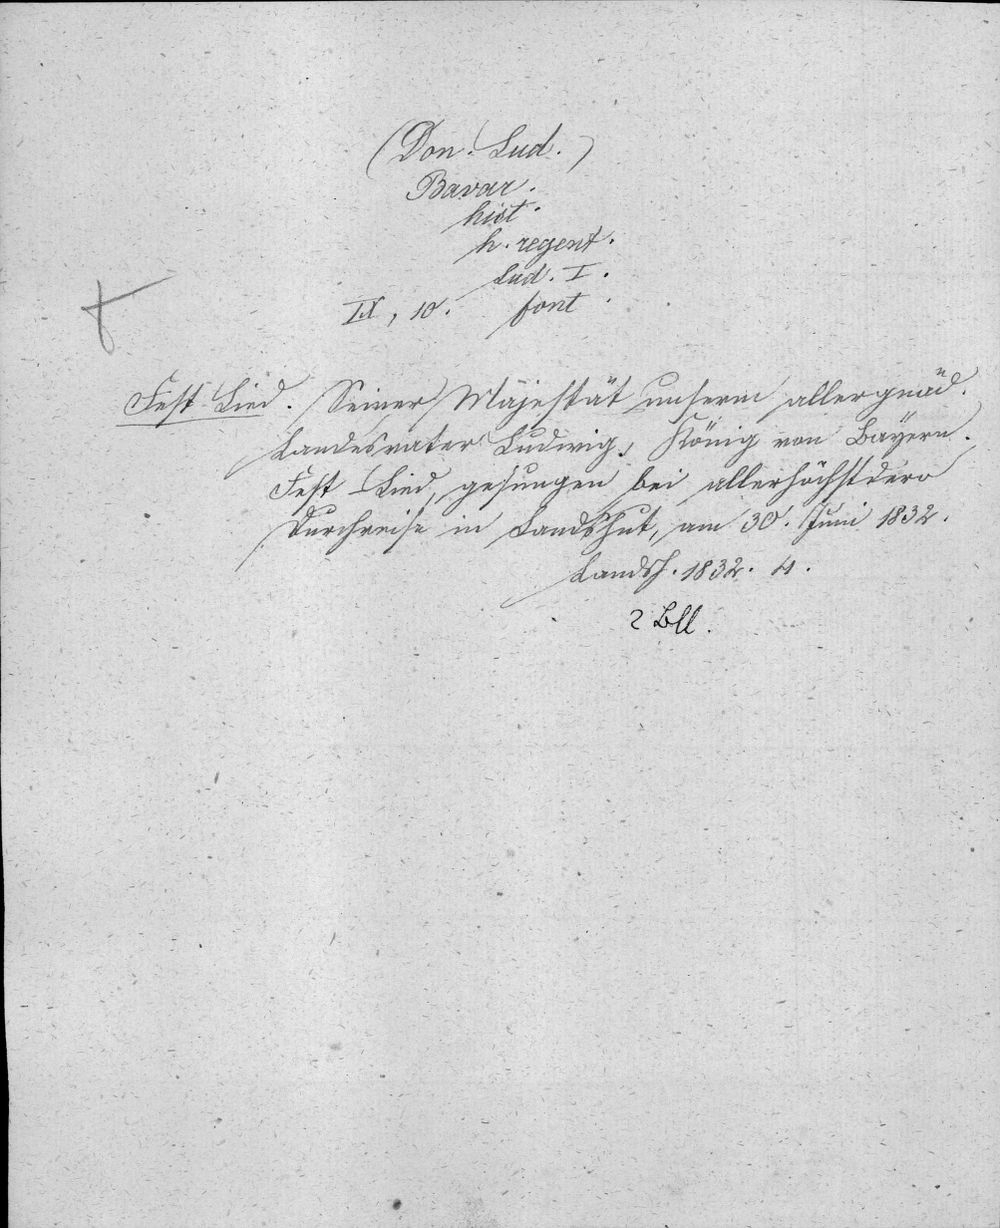 (Don. Lud.)
Bavar.
hist.
h. regent.
Lud. I.
IX, 10. font.
Fest Lied. Seiner Majestät unserm allergnäd.
Landesvater Ludwig, König von Bayern.
Fest-Lied, gesungen bei allerhöchstdero
Durchreise in Landshut, am 30. Juni 1832.
Landsh. 1832. 4.
2 Bll.